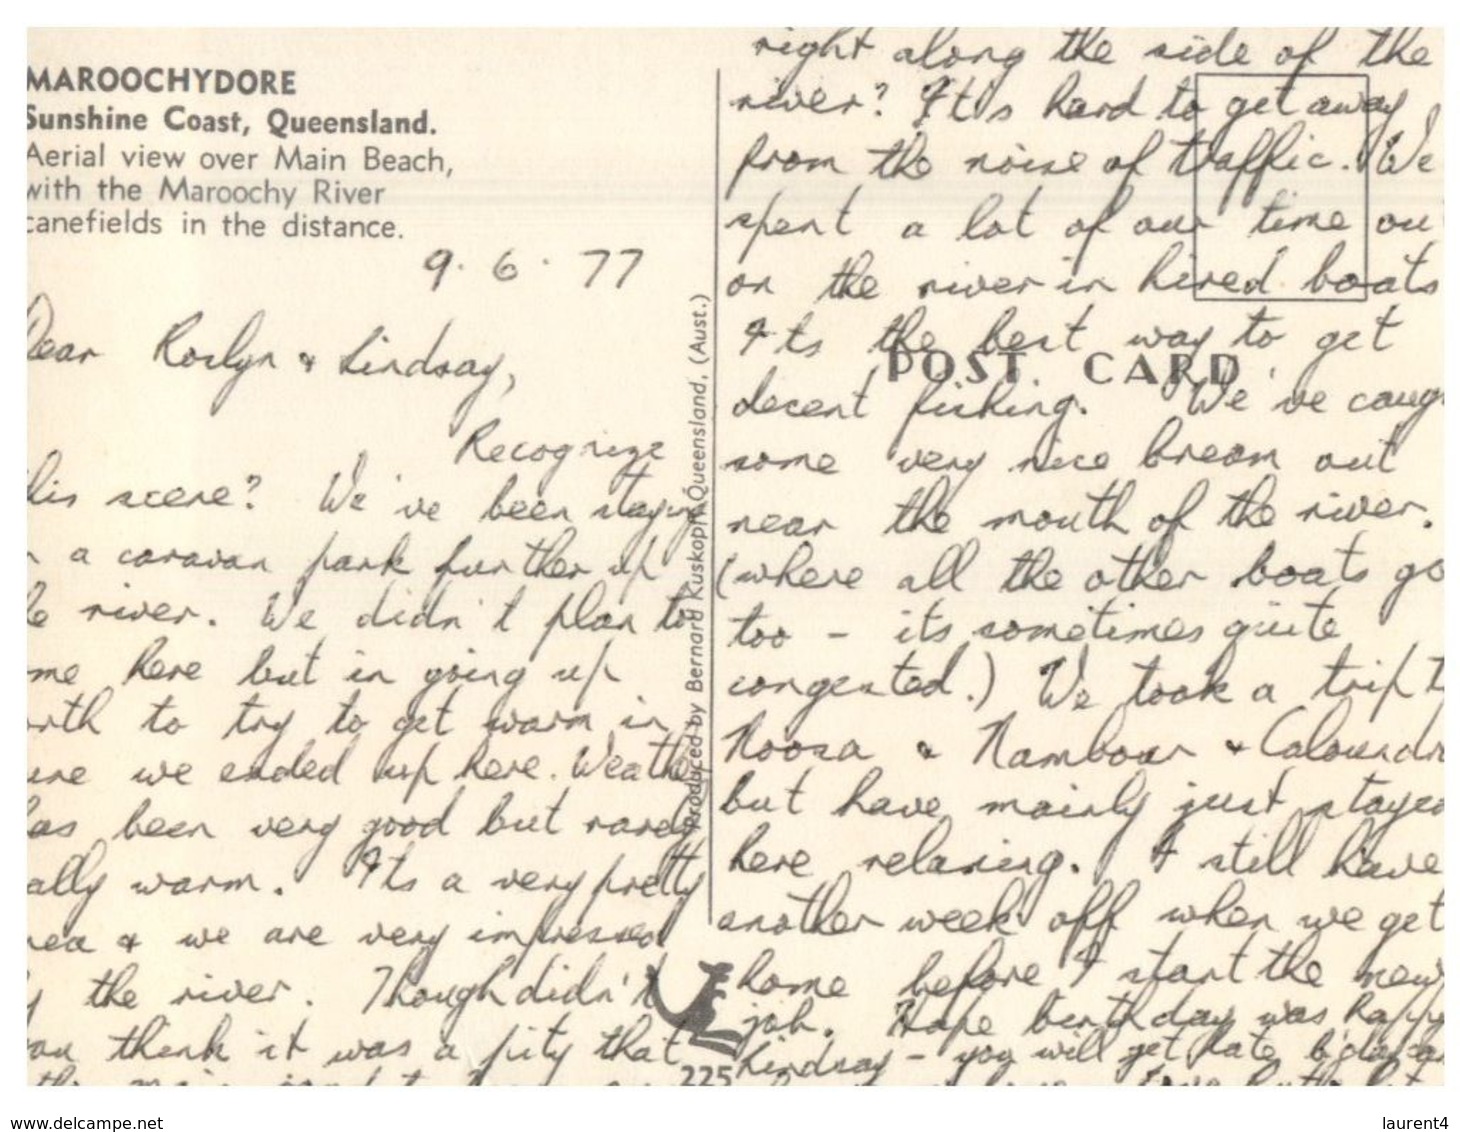 MAROOCHYDORE
Sunshine Coast, Queensland.
Aerial view over Main Beach,
with the Maroochy River
canefields in the distance.
9. 6. 77
Dear Roslyn & Lindsay,
Recognize
his scene? We've been staying
a caravan park further up
river. We didn't plan to
me here but in going up
rth to try to get warm in
une we ended up here. Weather
as been very good but rarely
ally warm. Its a very pretty
rea & we are very impressed
y the river. Though didn't
ou think it was a pity that
the main
Produced by Bernard Kuskopf, Queensland, (Aust.)
right along the side of the
river? It's hard to get away
from the noise of traffic. We
spent a lot of our time ou
on the river in hired boats
Its the best way to get
decent fishing. We've caug
some very nice bream out
near the mouth of the river.
(where all the other boats go
too - its sometimes quite
congested.) We took a trip t
Noosa & Nambour & Caloundr
but have mainly just stayed
here relaxing. I still have
another week off when we get
home before I start the new
job. Hope birthday was happy
Lindsay - you will get late
POST CARD
225
www.delcampe.net
laurent4